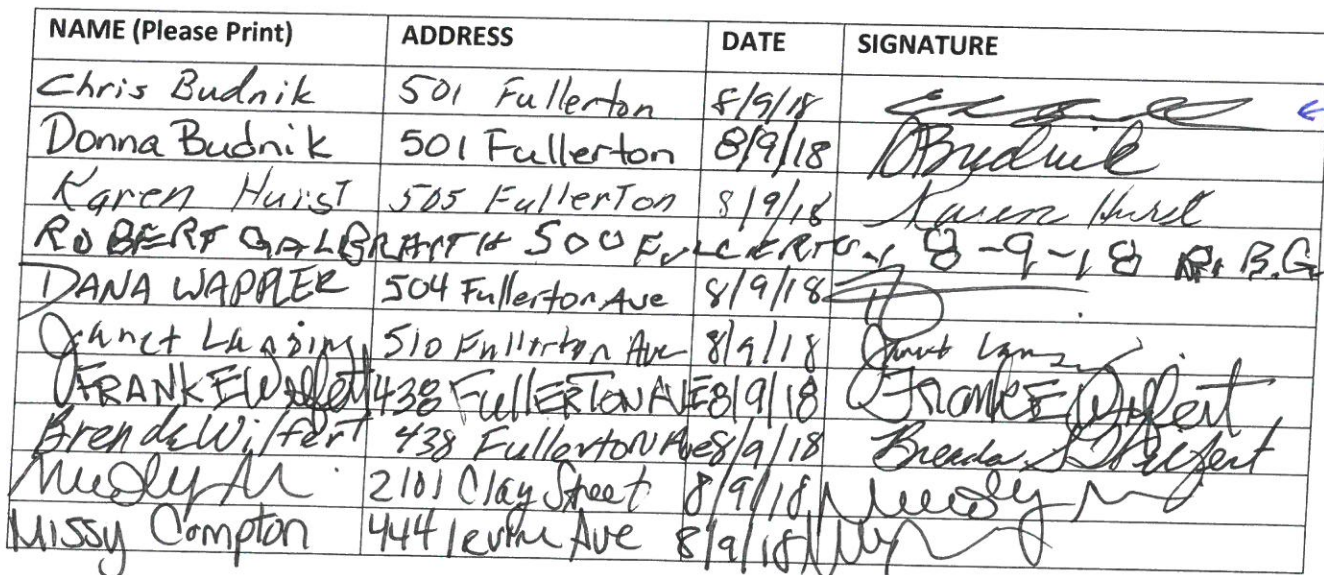 NAME (Please Print) ADDRESS DATE SIGNATURE
Chris Budnik 501 Fullerton 8/9/18
Donna Budnik 501 Fullerton 8/9/18 DBudnik
Karen Hurst 505 Fullerton 8/9/18 Karen Hurst
ROBERT GALBRAITH 500 FULLERTON 8-9-18 R.B.G.
DANA WAPPLER 504 Fullerton Ave 8/9/18
Janet Lansing 510 Fullerton Ave 8/9/18 Janet
FRANK E Wilfert 438 FullERTON AVE 8/9/18 FRANK E Wilfert
Brenda Wilfert 438 Fullerton Ave 8/9/18 Brenda Wilfert
2101 Clay Street 8/9/18
Missy Compton 444 Irvine Ave 8/9/18